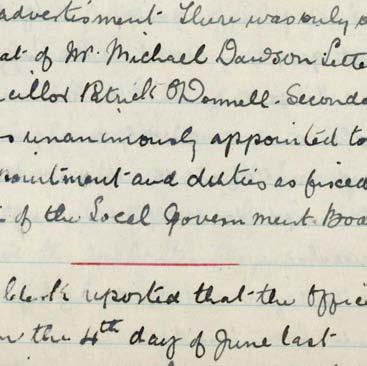 advertisment There was only o
at of Mr. Michael Dawson Lette
cillor Patrick O'Donnell. Seconde
s unanimously appointed to
ointment and duties as fixed
t of the Local Government Boa
Clerk reported that the Offic
on the 4th day of June last